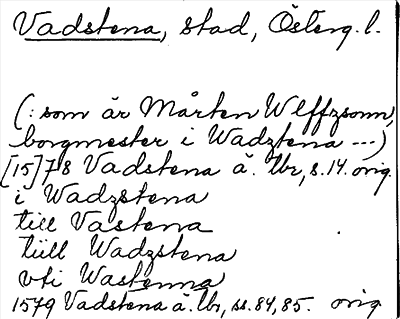 Vadstena, stad, Österg. l.
(: som är Mårten Wlffzsonn,
borgmester i Wadztena ---)
[15]78 Vadstena ä. tbr, s. 14. orig.
i Wadzstena
till Vastena
tiill Wadzstena
vti Wastenna
1579 Vadstena ä. tbr, ss. 84, 85. orig